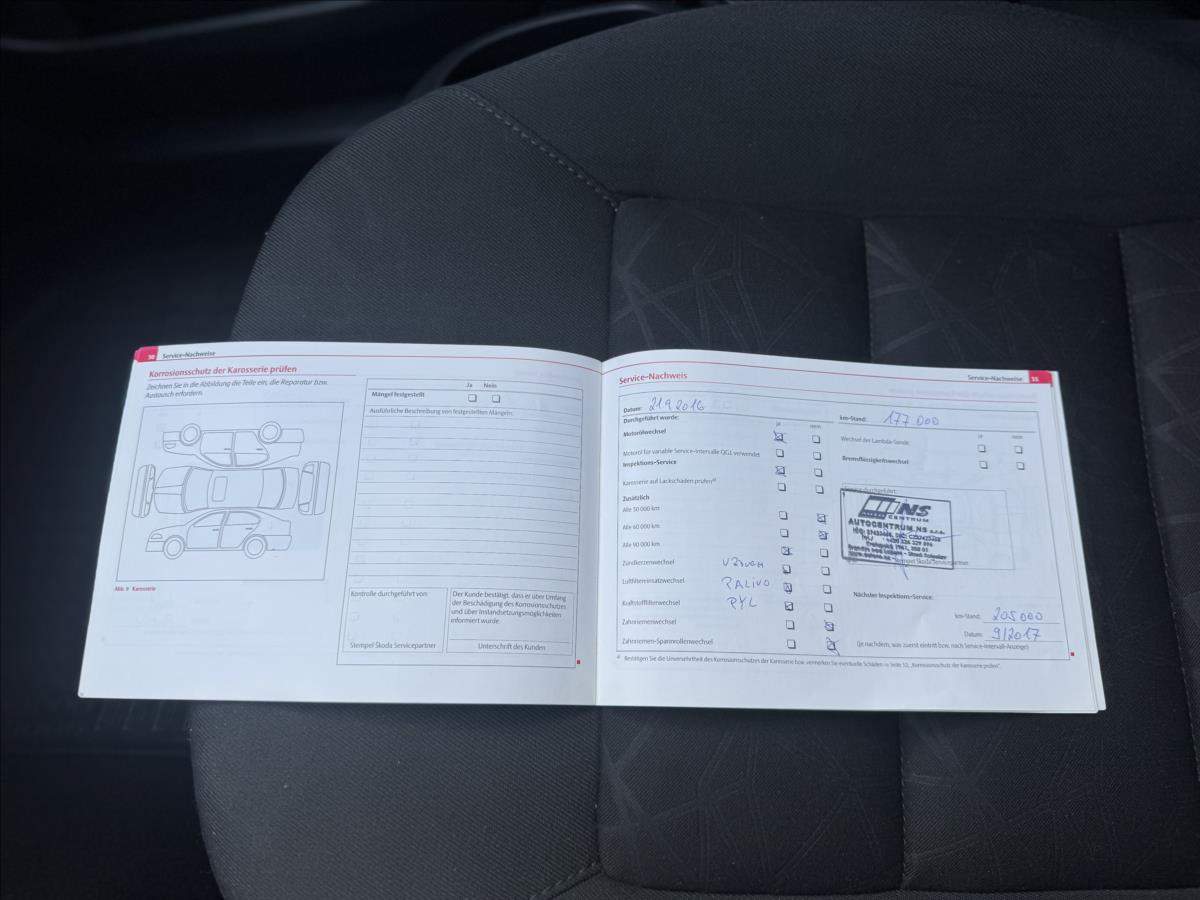 30 Service-Nachweise
Korrosionsschutz der Karosserie prüfen
Zeichnen Sie in die Abbildung die Teile ein, die Reparatur bzw.
Austausch erfordern.
Abb. 9 Karosserie
Ja Nein
Mängel festgestellt
Ausführliche Beschreibung von festgestellten Mängeln:
Kontrolle durchgeführt von:
Stempel Škoda Servicepartner
Der Kunde bestätigt, dass er über Umfang
der Beschädigung des Korrosionsschutzes
und über Instandsetzungsmöglichkeiten
informiert wurde.
Unterschrift des Kunden
Service-Nachweise
Service-Nachweis
Datum: 21.9.2016
Durchgeführt wurde:
ja nein
Motorölwechsel
Motoröl für variable Service-Intervalle QG1 verwendet
Inspektions-Service
Karosserie auf Lackschäden prüfen
Zusätzlich
Alle 30 000 km
Alle 60 000 km
Alle 90 000 km
Zündkerzenwechsel
Luftfiltereinsatzwechsel
Kraftstofffilterwechsel
Zahnriemenwechsel
Zahnriemen-Spannrollenwechsel
PALIVO
PYL
km-Stand: 177 000
ja nein
Wechsel der Lambda-Sonde:
Bremsflüssigkeitswechsel
Service durchgeführt:
NS
AUTO CENTRUM
AUTOCENTRUM NS s.r.o.
Stempel Škoda Servicepartner
Nächster Inspektions-Service:
km-Stand: 205000
Datum: 9/2017
(je nachdem, was zuerst eintritt bzw. nach Service-Intervall-Anzeige)
Bestätigen Sie die Unversehrtheit des Korrosionsschutzes der Karosserie bzw. vermerken Sie eventuelle Schäden ⇒ Seite 10, „Korrosionsschutz der Karosserie prüfen“.